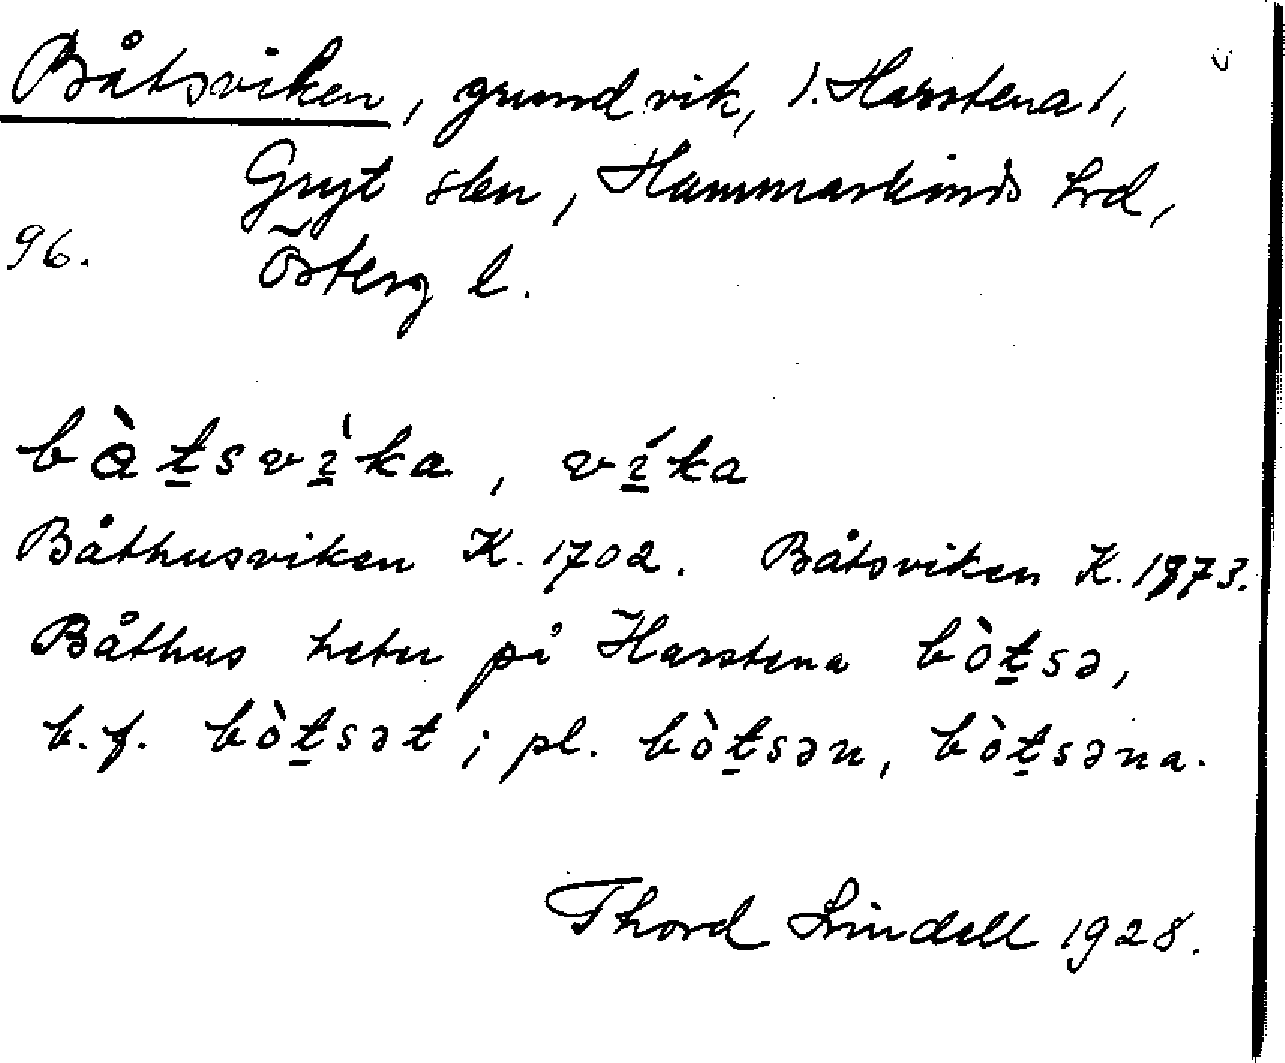 Båtsviken, grund vik, 1. Harstena 1,
Gryt skn, Hammarkinds hrd,
96. Österg l.
bàt̠svì̠ka, ví̠ka
Båthusviken K. 1702. Båtsviken K. 1873.
Båthus heter på Harstena bòt̠sə,
b.f. bòt̠sət ; pl. bòt̠sən, bòt̠səna.
Thord Lindell 1928.